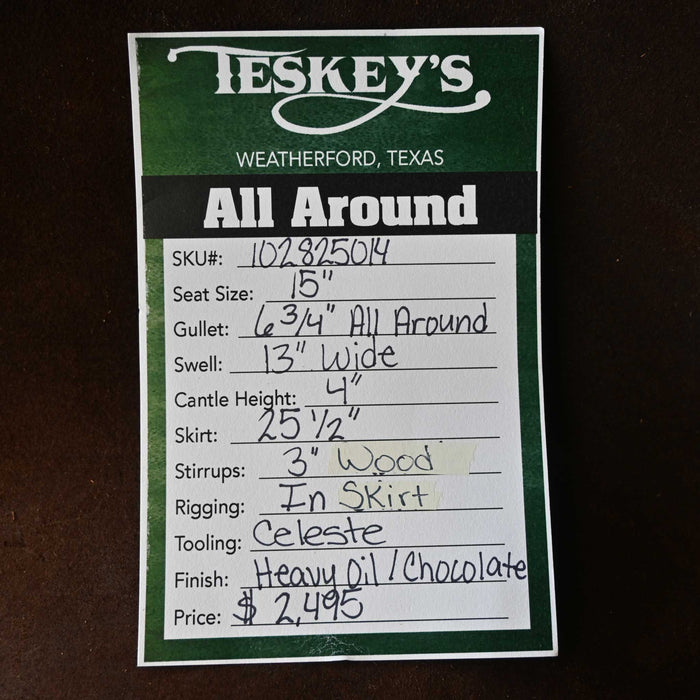 TESKEY'S
WEATHERFORD, TEXAS
All Around
SKU#: 102825014
Seat Size: 15"
Gullet: 6 3/4" All Around
Swell: 13" Wide
Cantle Height: 4"
Skirt: 25 1/2"
Stirrups: 3" Wood
Rigging: In Skirt
Tooling: Celeste
Finish: Heavy Oil / Chocolate
Price: $ 2,495